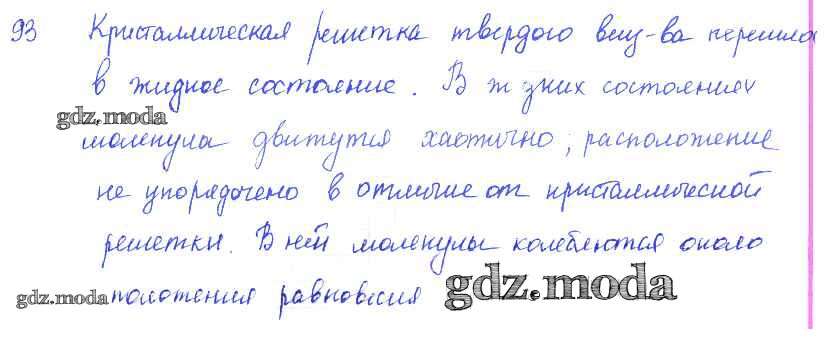 93 Кристаллическая решетка твердого вещ-ва перешла
в жидкое состояние. В жидких состояниях
gdz.moda
молекула движутся хаотично, расположение
не упорядочено в отличие от кристаллической
решетки. В ней молекулы колеблются около
gdz.moda положения равновесия gdz.moda